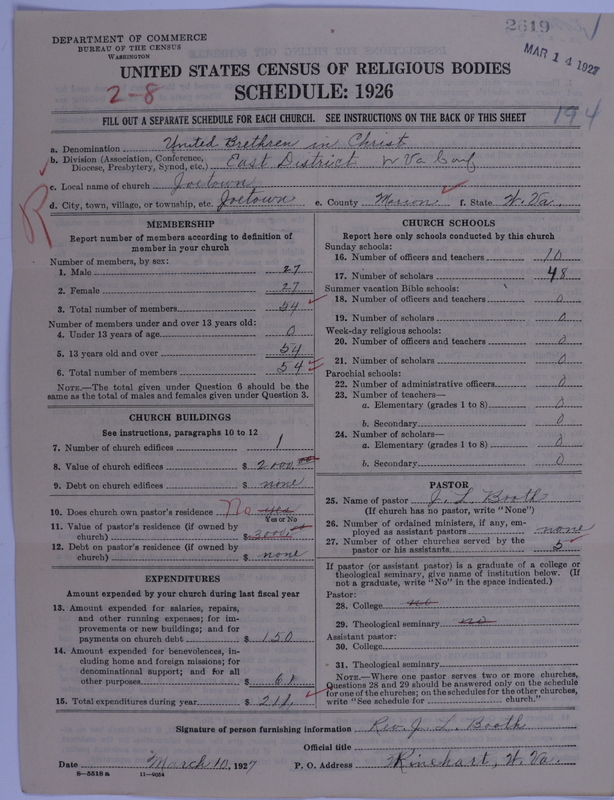 2619
MAR 14 1927
DEPARTMENT OF COMMERCE
BUREAU OF THE CENSUS
WASHINGTON
UNITED STATES CENSUS OF RELIGIOUS BODIES
SCHEDULE: 1926
2-8
194
FILL OUT A SEPARATE SCHEDULE FOR EACH CHURCH. SEE INSTRUCTIONS ON THE BACK OF THIS SHEET
a. Denomination United Brethren in Christ
b. Division (Association, Conference, Diocese, Presbytery, Synod, etc.) East District W Va Conf
c. Local name of church Joetown
d. City, town, village, or township, etc. Joetown e. County Marion f. State W. Va.
R
MEMBERSHIP
Report number of members according to definition of
member in your church
Number of members, by sex:
1. Male 27
2. Female 27
3. Total number of members 54
Number of members under and over 13 years old:
4. Under 13 years of age 0
5. 13 years old and over 54
6. Total number of members 54
NOTE.—The total given under Question 6 should be
same as the total of males and females given under Question 3.
CHURCH BUILDINGS
See instructions, paragraphs 10 to 12
7. Number of church edifices 1
8. Value of church edifices $ 2000.00
9. Debt on church edifices $ none
10. Does church own pastor's residence No yes
Yes or No
11. Value of pastor's residence (if owned by
church) $ 3000.00
12. Debt on pastor's residence (if owned by
church) $ none
EXPENDITURES
Amount expended by your church during last fiscal year
13. Amount expended for salaries, repairs,
and other running expenses; for im-
provements or new buildings; and for
payments on church debt $ 150
14. Amount expended for benevolences, in-
cluding home and foreign missions; for
denominational support; and for all
other purposes $ 61
15. Total expenditures during year $ 211
CHURCH SCHOOLS
Report here only schools conducted by this church
Sunday schools:
16. Number of officers and teachers 10
17. Number of scholars 48
Summer vacation Bible schools:
18. Number of officers and teachers 0
19. Number of scholars 0
Week-day religious schools:
20. Number of officers and teachers 0
21. Number of scholars 0
Parochial schools:
22. Number of administrative officers 0
23. Number of teachers—
a. Elementary (grades 1 to 8) 0
b. Secondary 0
24. Number of scholars—
a. Elementary (grades 1 to 8) 0
b. Secondary 0
PASTOR
25. Name of pastor J. L. Booth
(If church has no pastor, write "None")
26. Number of ordained ministers, if any, em-
ployed as assistant pastors none
27. Number of other churches served by the
pastor or his assistants 5
If pastor (or assistant pastor) is a graduate of a college or
theological seminary, give name of institution below. (If
not a graduate, write "No" in the space indicated.)
Pastor:
28. College no
29. Theological seminary no
Assistant pastor:
30. College
31. Theological seminary
NOTE.—Where one pastor serves two or more churches,
Questions 28 and 29 should be answered only on the schedule
for one of the churches; on the schedules for the other churches,
write "See schedule for church."
Signature of person furnishing information Rev. J. L. Booth
Official title
Date March 10, 1927 P. O. Address Rinehart, W. Va.
8-5518 a 11-9054